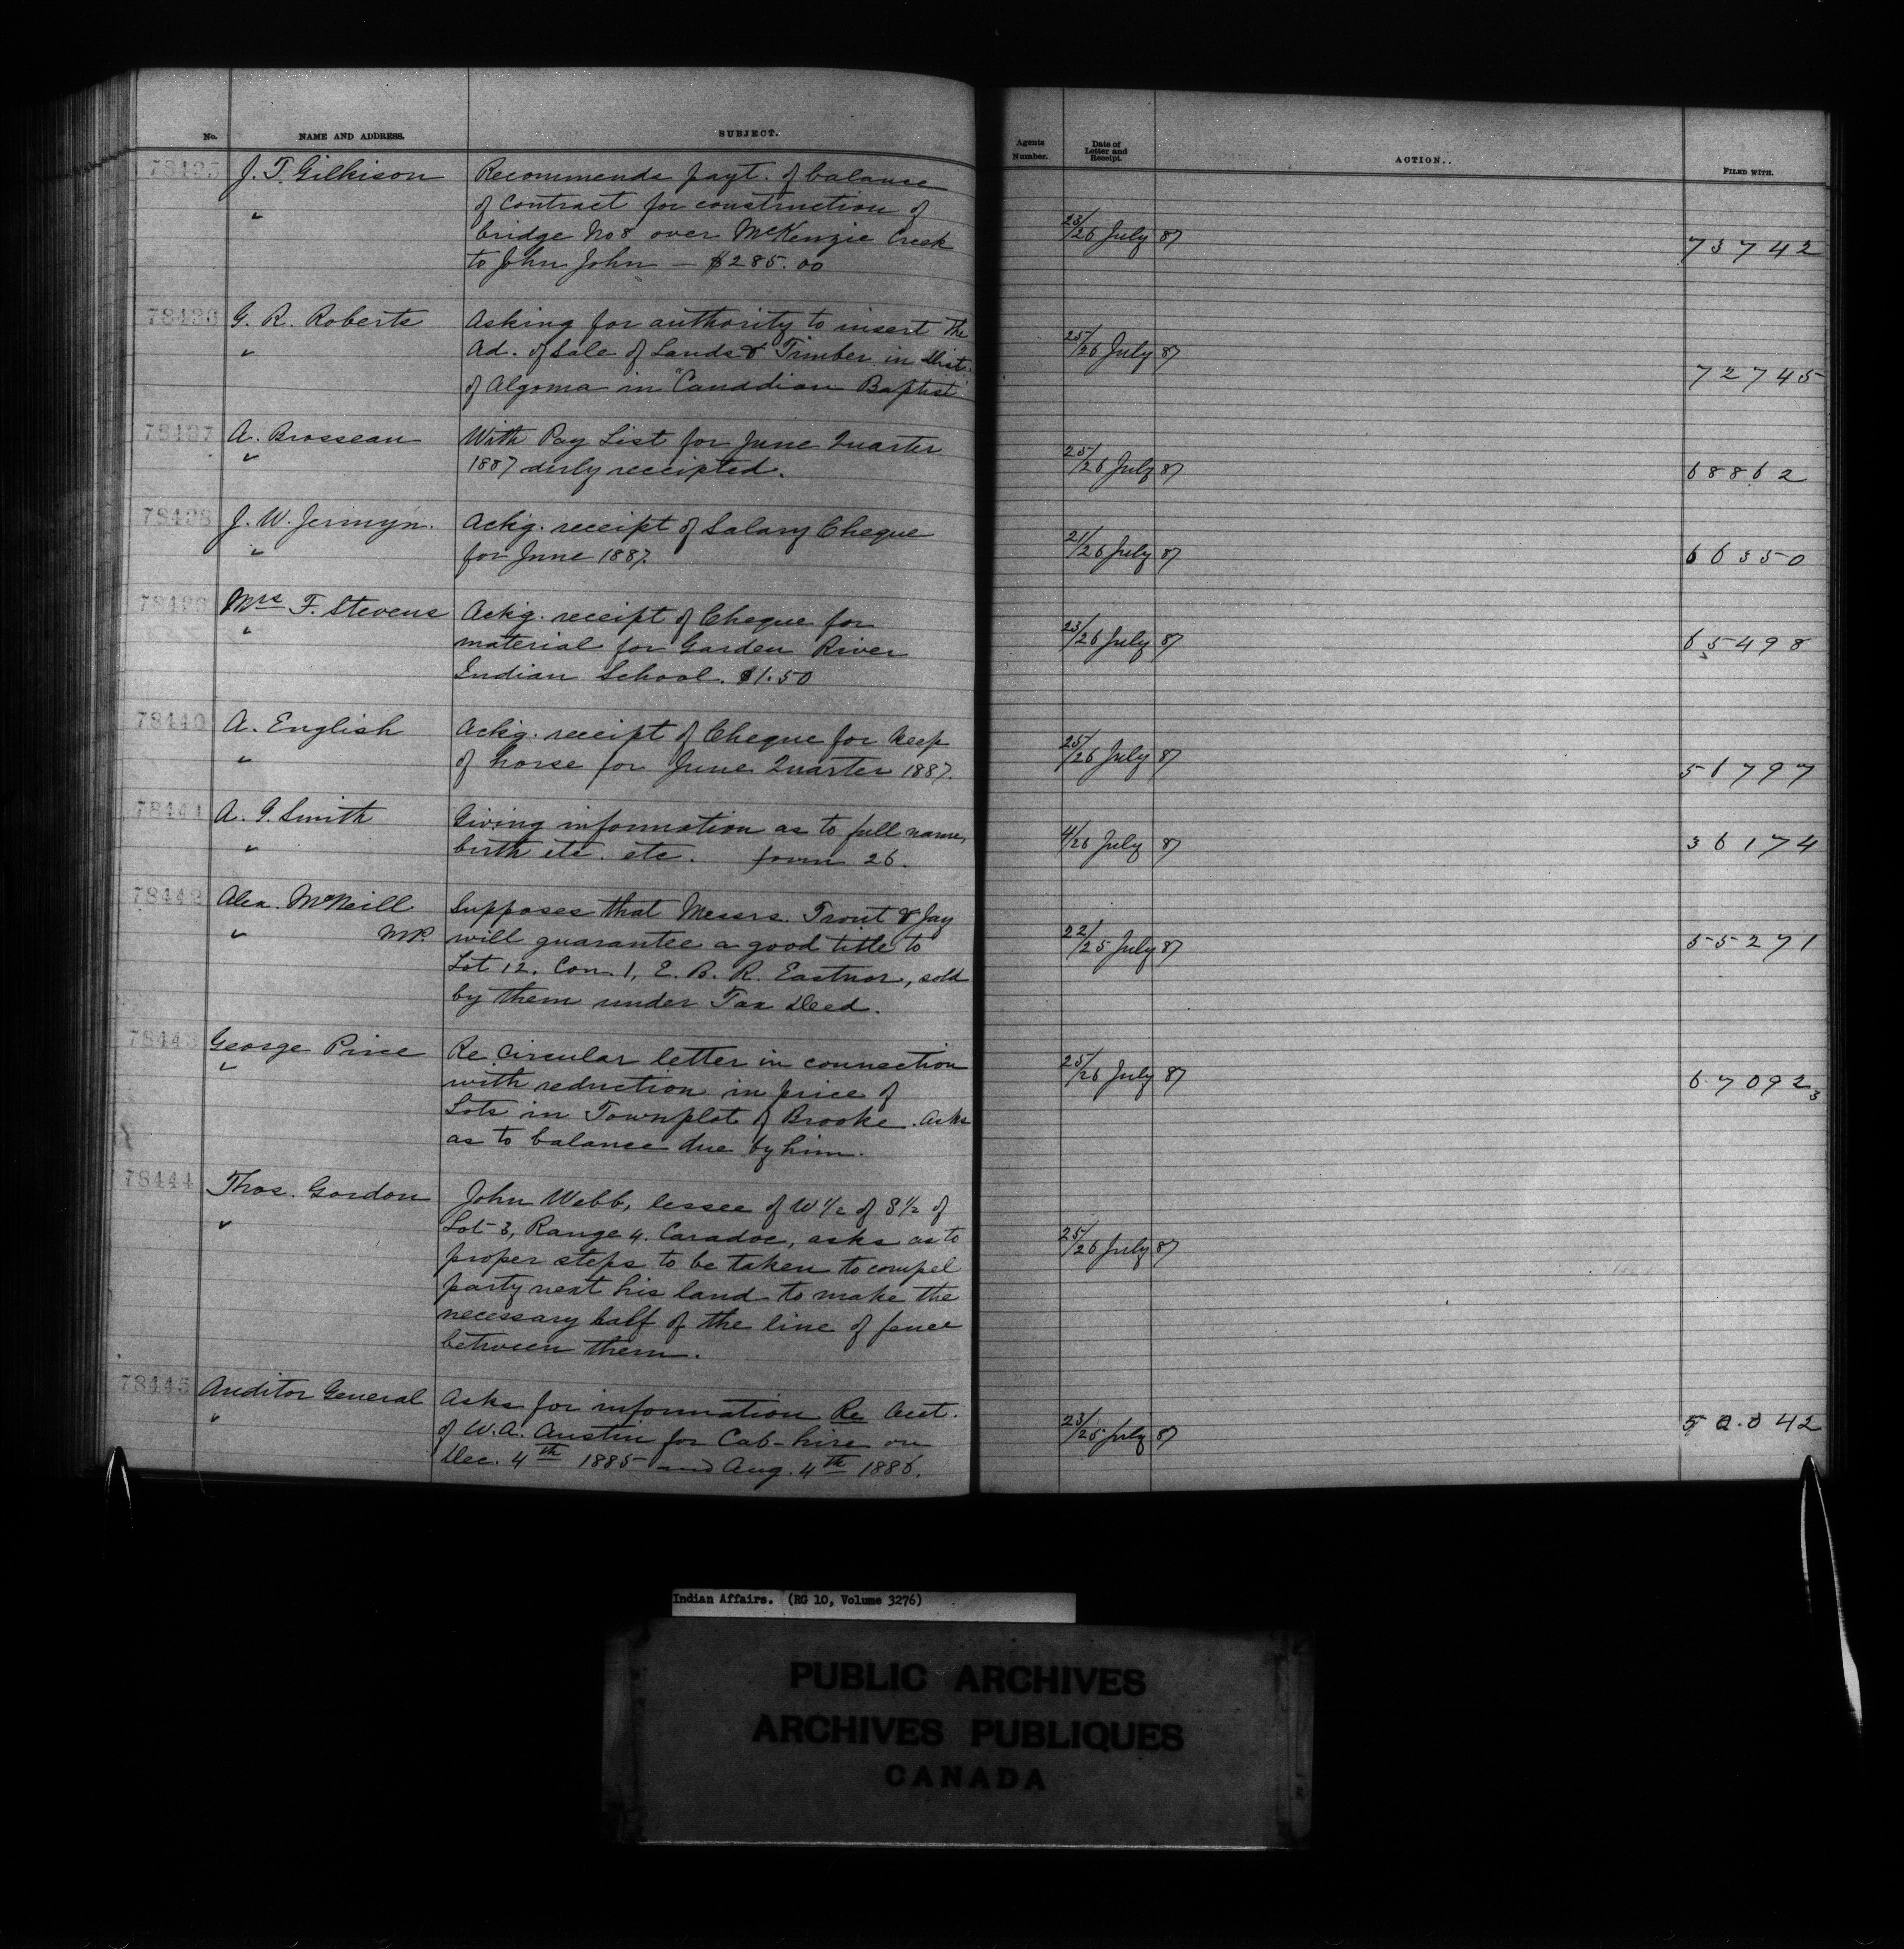 No. NAME AND ADDRESS. SUBJECT. Agents Number. Date of Letter and Receipt. ACTION.. FILED WITH.
78435 J. T. Gilkison Recommends payt. of balance
" of Contract for construction of 23/26 July 87 73742
bridge No 8 over McKenzie Creek
to John John — $285.00
78436 G. R. Roberts Asking for authority to insert the
" Ad. of Sale of Lands & Timber in Dist. 25/26 July 87 72745
of Algoma in "Canadian Baptist"
78437 A. Brosseau With Pay List for June Quarter
" 1887 duly receipted. 25/26 July 87 68862
78438 J. W. Jermyn. Ackg. receipt of Salary Cheque
" for June 1887. 21/26 July 87 66350
78439 Mrs F. Stevens Ackg. receipt of Cheque for
" material for Garden River 23/26 July 87 65498
Indian School. $1.50
78440 A. English Ackg. receipt of Cheque for keep
" of horse for June Quarter 1887. 25/26 July 87 51797
78441 A. G. Smith Giving information as to full name,
" birth etc. etc. form 26. 4/26 July 87 36174
78442 Alex. McNeill Supposes that Messrs. Trout & Jay
" M.P. will guarantee a good title to 22/25 July 87 55271
Lot 12. Con. 1, E. B. R. Eastnor, sold
by them under Tax Deed.
78443 George Price Re Circular letter in connection
" with reduction in price of 25/26 July 87 67092 3
Lots in Townplot of Brooke. Asks
as to balance due by him.
78444 Thos. Gordon John Webb, lessee of W 1/2 of S 1/2 of
" Lot 3, Range 4. Caradoc, asks as to 25/26 July 87
proper steps to be taken to compel
party next his land to make the
necessary half of the line of fence
between them.
78445 Auditor General Asks for information Re Acct.
" of W. A. Austin for Cab-hire on 23/25 July 87
Dec. 4th 1885 and Aug. 4th 1886.
Indian Affairs. (RG 10, Volume 3276)
PUBLIC ARCHIVES
ARCHIVES PUBLIQUES
CANADA